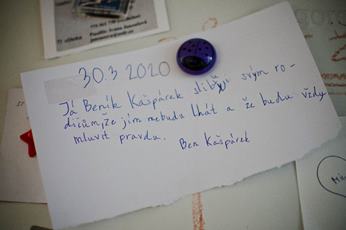 30.3 2020
Já Beník Kašpárek slibuji svým ro-
dičům, že jim nebudu lhát a že budu vždy
mluvit pravdu.
Ben Kašpárek